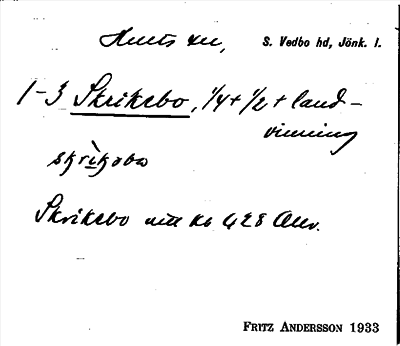 Hults sn, S. Vedbo hd, Jönk. l.
1-3 Skrikebo, 1/4 + 1/2 + land-
vinning
skrìkəbo
Skrikebo mtl
FRITZ ANDERSSON 1933